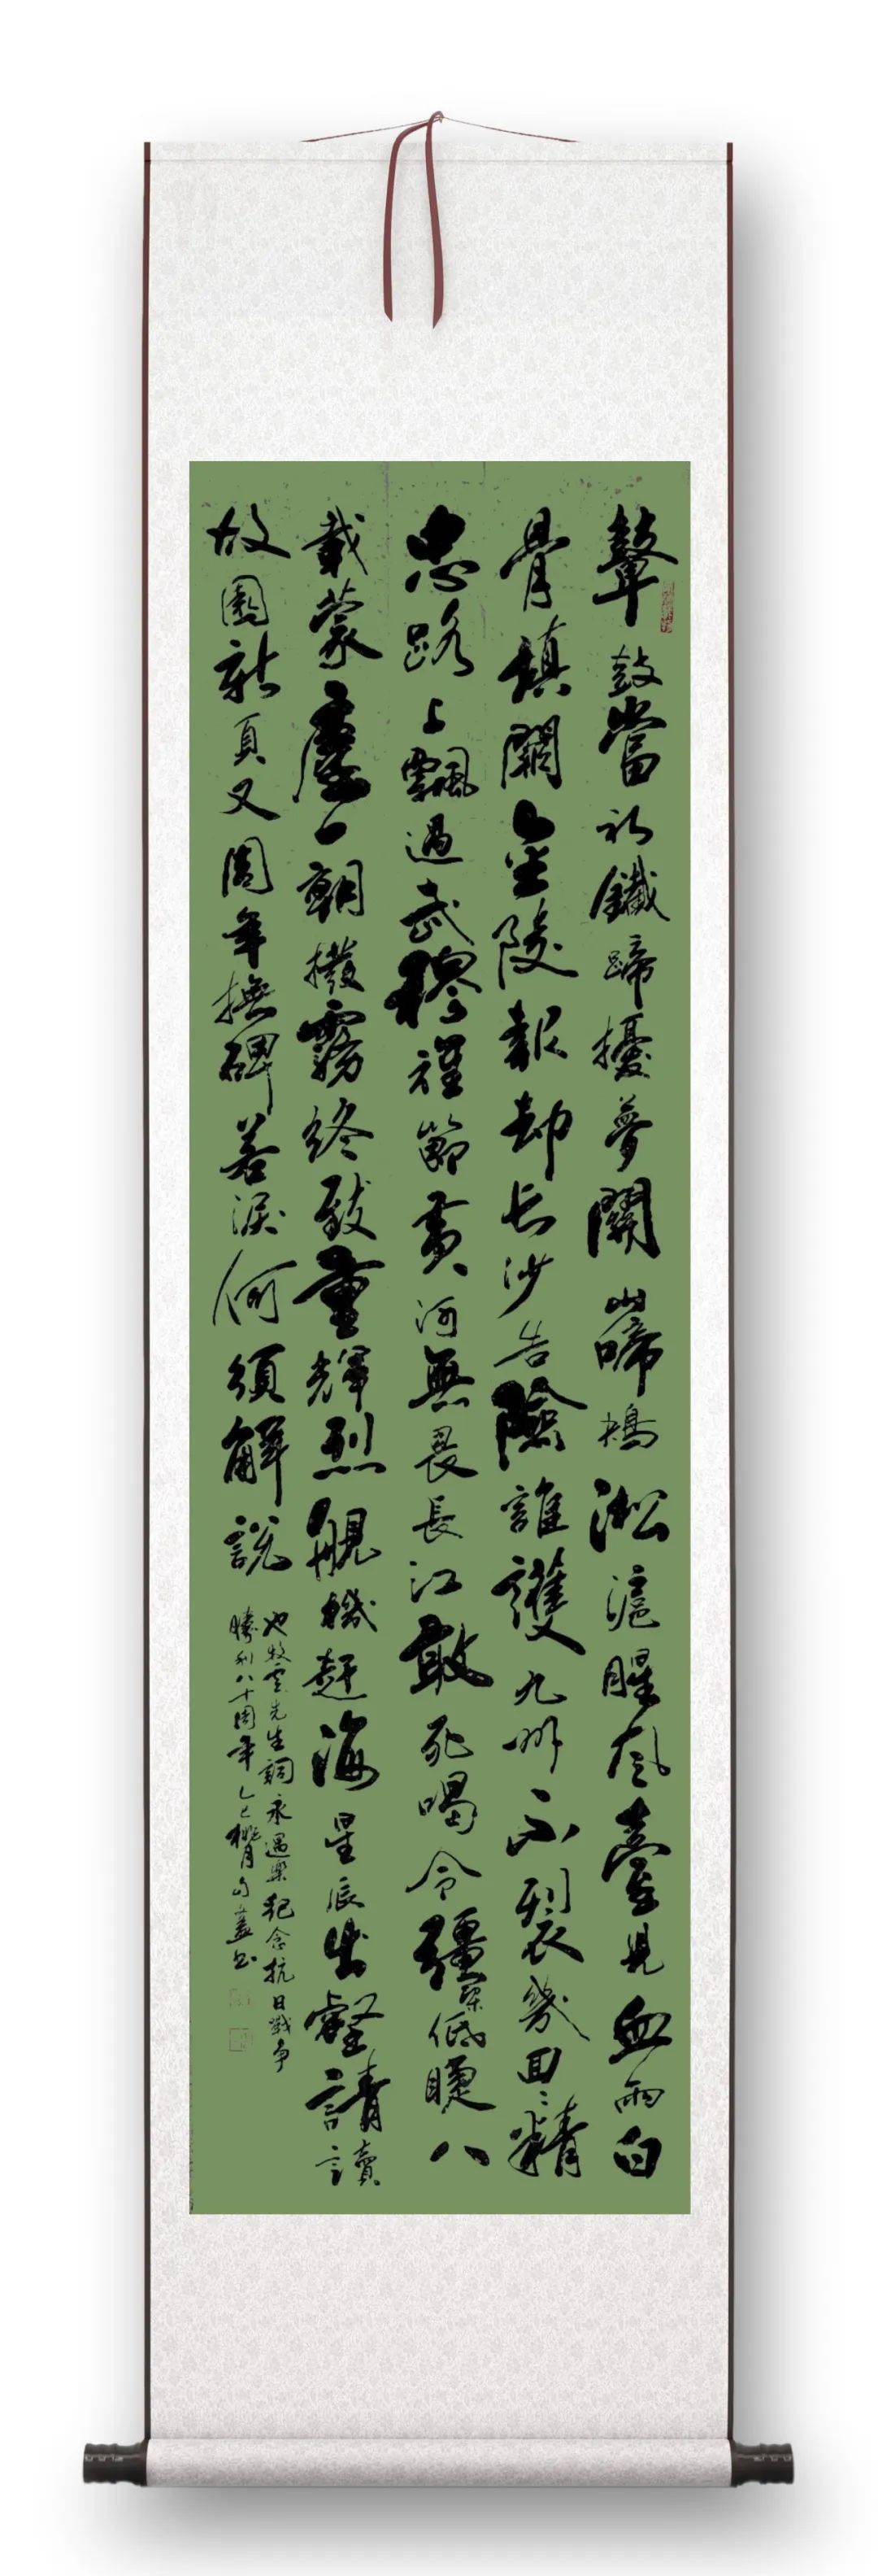 鼙鼓當初鐵蹄擾夢關山啼鴂淞滬腥風臺兒血雨白
骨填闕金陵報劫長沙告險誰護九州不裂幾回回精
忠路上飄過武穆旌節黃河無畏長江敢死喝令疆梁低睫八
載蒙塵一朝撥霧終致重輝烈艦機赶海星辰出壑請讀
故園新頁又周年撫碑若淚何須解說
也牧雲先生詞永遇樂紀念抗日戰爭
勝利八十周年乙巳桃月